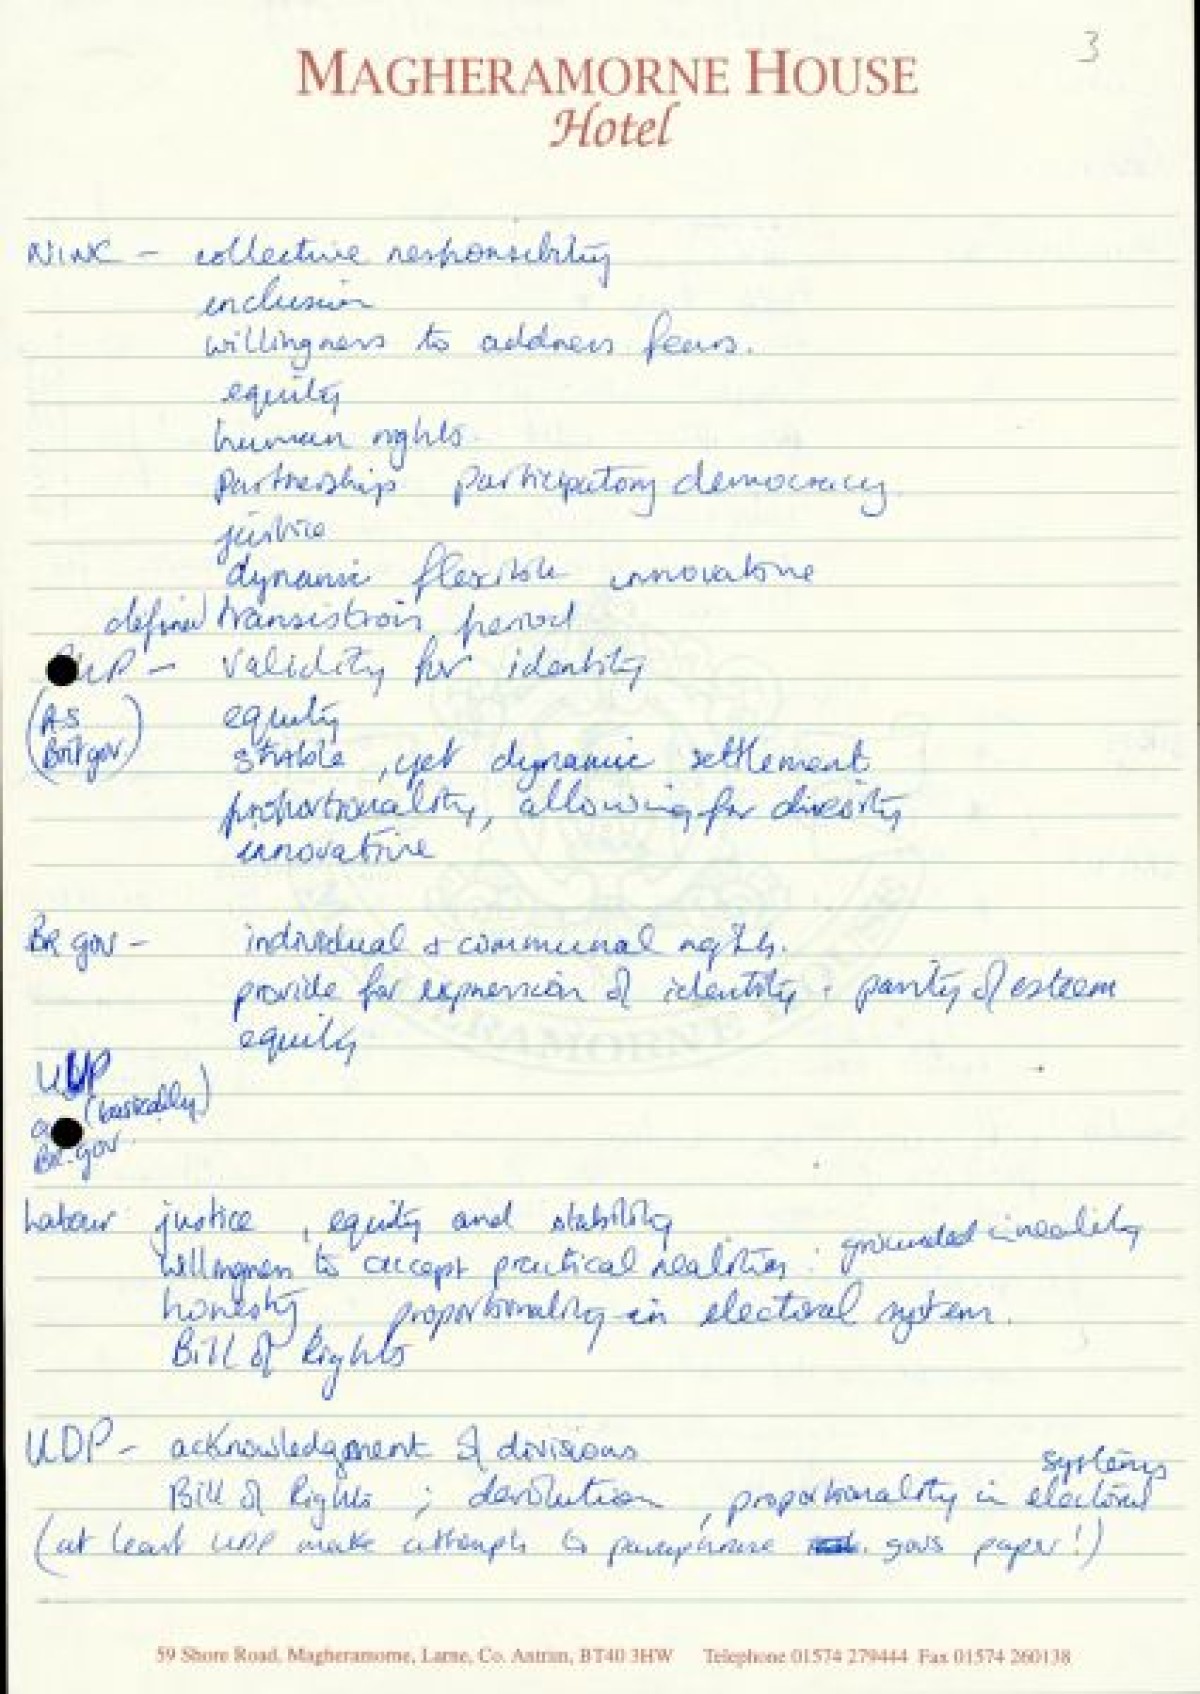 3
MAGHERAMORNE HOUSE
Hotel
NIWC - collective responsibility
inclusion
willingness to address fears.
equity
human rights.
Partnership participatory democracy.
justice
dynamic flexible innovative
defined transistion period
UP - validity for identity
(AS
Brit gov)
equity
stable, yet dynamic settlement.
proportionality, allowing for diversity
innovative
Br gov - individual + communal rights.
provide for expression of identity + parity of esteem
equity
UUP
(basically)
Br. gov.
Labour justice, equity and stability
willingness to accept practical realities: grounded in reality
honesty proportionality in electoral system.
Bill of Rights
UDP - acknowledgment of divisions
Bill of Rights; devolution, proportionality in electoral systems
(at least UDP make attempts to paraphrase gov's paper!)
59 Shore Road, Magheramorne, Larne, Co. Antrim, BT40 3HW Telephone 01574 279444 Fax 01574 260138